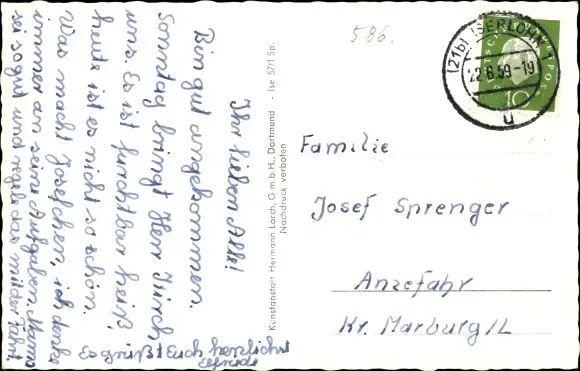 586.
(21b) ISERLOHN 1
22.6.59-19
u
DEUTSCHE BUNDESPOST
10
Ihr lieben Alle!
Bin gut angekommen.
Sonntag bringt Herr
uns. Es ist furchtbar heiß,
heute ist es nicht so schön.
Was macht Josefchen, ich denke
immer an seine Aufgaben. Mama
sei so gut und regele das mit der Fahrt.
Es grüßt Euch herzlichst
Elfriede
Kunstanstalt Hermann Lorch, G.m.b.H., Dortmund - Ise 57/1 Sp.
Nachdruck verboten
Familie
Josef Sprenger
Anzefahr
Kr. Marburg/L